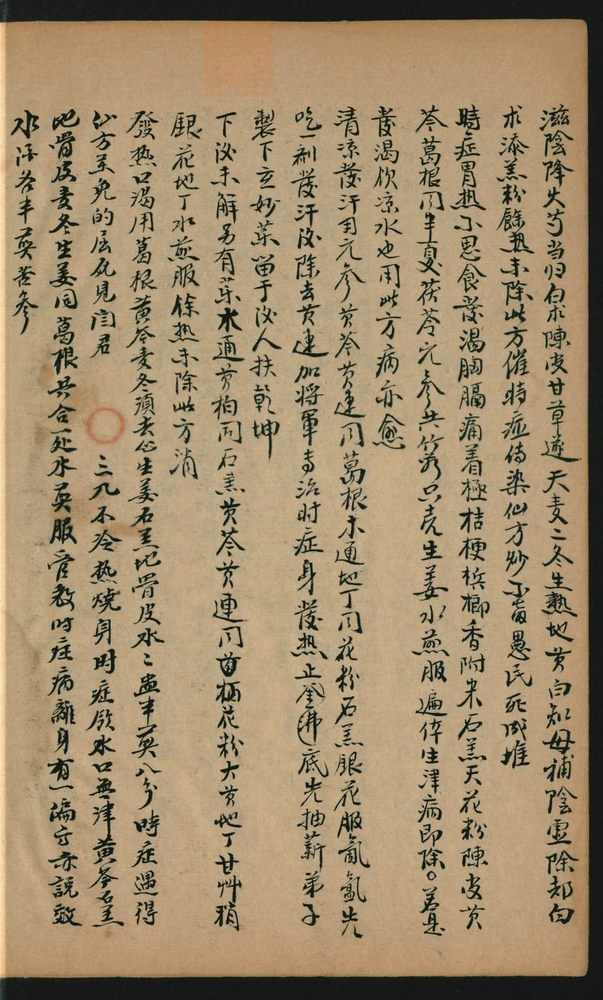 滋陰降火芍当归白朮陳皮甘草遂天麦二冬生熟地黄白知母補陰虛除却白
求添羔粉餘熱未除此方催時症傳染仙方妙不畜愚民死成堆
時症胃热不思食發渴胸膈痛着極桔梗梹榔香附米石羔天花粉陳皮黄
芩葛根同半夏茯苓元参共竹茹只壳生姜水煎服遍体生津病即除。若是
發渴飲凉水也用此方病亦愈
清凉發汗用元参黄芩黄連同葛根木通地丁同花粉石羔银花服氤氲先
吃一剂發汗後除去黄連加將軍专治时症身發热止沸底先抽薪弟子
製下立妙葯留于後人扶乾坤
下後未解另有葯木通黄柏同石羔黄芩黄連同花粉大黄地丁甘艸稍
银花地丁水煎服餘热未除此方消
發热口渴用葛根黄芩麦冬須去心生姜石羔地骨皮水二盅半煎八分時症遇得
仙方至免的屈死見闫君
三九不冷热燒身时症飲水口無津黄芩石羔
地骨皮麦冬生姜同葛根共合一处水煎服管教时症病離身有一偏方亦説效
水苔半煎苦参